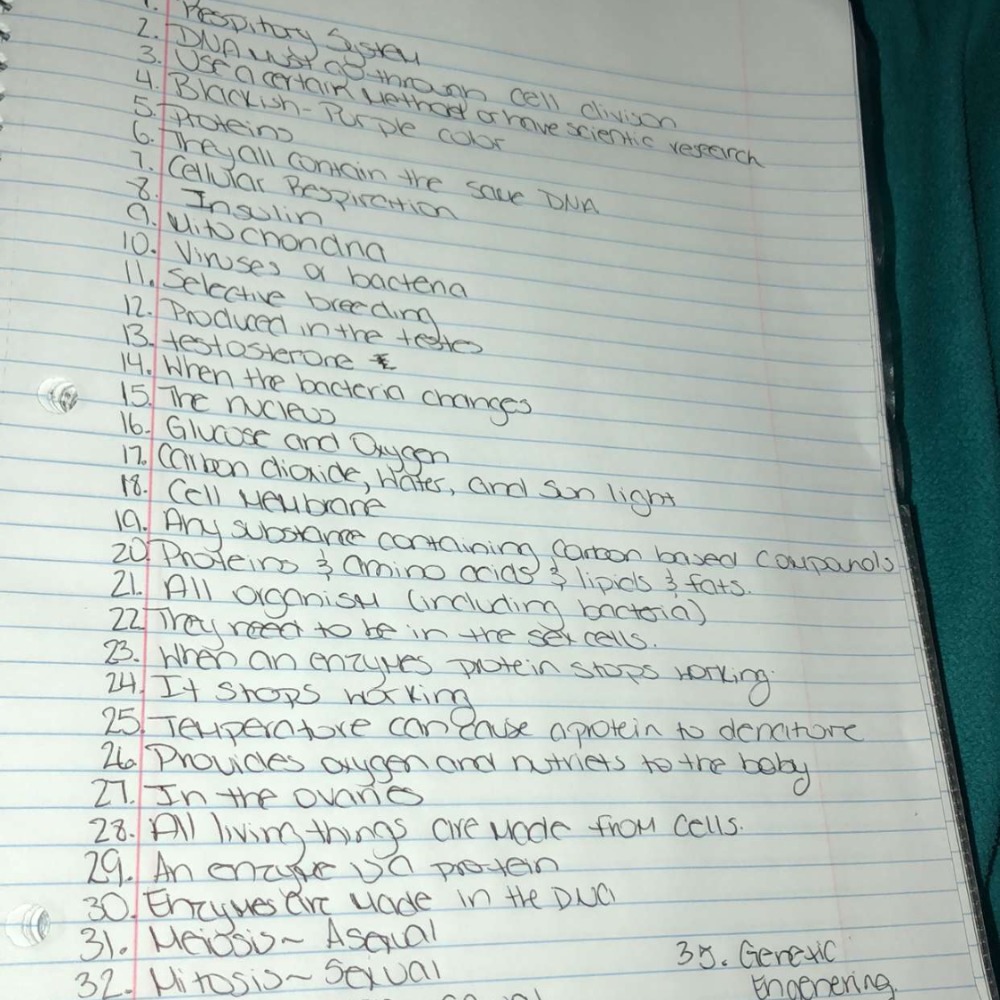 1. Respitory System
2. DNA must go through cell divison
3. Use a certain Method or have scientic research
4. Blackish-Purple color
5. Proteins
6. They all contain the same DNA
7. Cellular Respiration
8. Insulin
9. Mitochondria
10. Viruses or bacteria
11. Selective breeding
12. Produced in the testes
13. testosterone
14. When the bacteria changes
15. The nucleus
16. Glucose and Oxygen
17. Carbon dioxide, Water, and Sun light
18. Cell Membrane
19. Any substance containing Carbon based Coumpounds
20. Proteins & amino acids & lipids & fats.
21. All organism (including bacteria)
22. They need to be in the sex cells.
23. When an enzymes protein stops working.
24. It stops working
25. Temperature can cause a protein to denature
26. Provides oxygen and nutriets to the baby
27. In the ovaries
28. All living things are Made from cells.
29. An enzyme is a protein
30. Enzymes are Made in the DNA
31. Meiosis~ Asexual
32. Mitosis~ Sexual
35. Genetic
Engenering.